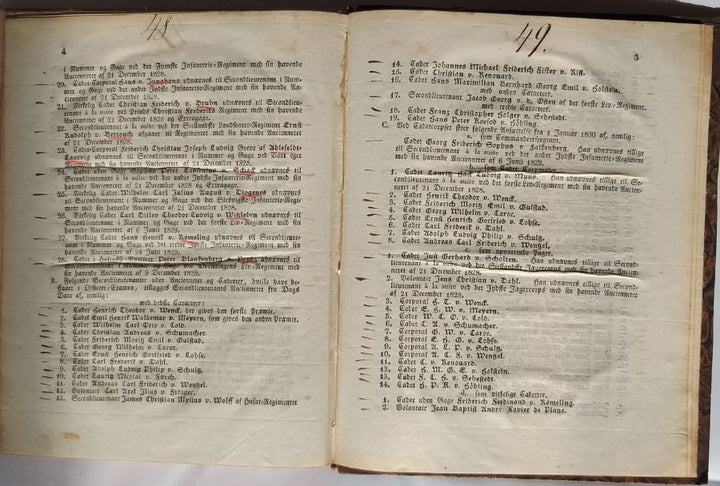 48
4
i Nummer og Gage ved det Fyenske Infanterie-Regiment med sin havende
Anciennetet af 21 December 1828.
20. Cadet-Corporal Hans v. Jungdans udnævnes til Secondlieutenant i Num-
mer og Gage ved det Jydske Infanterie-Regiment med sin havende An-
ciennetet af 21 December 1828.
21. Virkelig Cadet Christian Friderich v. Bruhn udnævnes til Secondlieu-
tenant à la suite ved Prinds Christian Frederiks Regiment med sin havende
Anciennetet af 21 December 1828 og Extragage.
22. Secondlieutenant à la suite ved det Siellandske Landseneer-Regiment Ernst
Rudolph v. Bertouch afgaaer til Regimentet med sin havende Anciennetet
af 21 December 1828.
23. Cadet-Corporal Friderich Christian Joseph Ludvig Greve af Ahlefeldt-
Laurvig udnævnes til Secondlieutenant i Nummer og Gage ved Vort eget
Regiment med sin havende Anciennetet af 21 December 1828.
24. Cadet uden Gage Sophus Peter Laurentius v. Schack udnævnes til
Secondlieutenant à la suite ved det andet Jydske Infanterie-Regiment med sin
havende Anciennetet af 21 December 1828 og Extragage.
25. Virkelig Cadet Wilhelm Carl Julius August v. Diogenes udnævnes til
Secondlieutenant i Nummer og Gage ved det Slesvigske Infanterie-Regi-
ment med sin havende Anciennetet af 21 December 1828.
26. Virkelig Cadet Carl Ditlev Theodor Ludvig v. Witzleben udnævnes til
Secondlieutenant i Nummer og Gage ved det første Liv-Regiment med sin
havende Anciennetet af 6 Junii 1829.
27. Virkelig Cadet Hans Henrik v. Römeling udnævnes til Secondlieute-
nant i Nummer og Gage ved det tredie Jydske Infanterie-Regiment med sin
havende Anciennetet af 24 Julii 1829.
28. Cadet i Nummer Peter Blankenberg v.
Regiment med sin
havende Anciennetet af 9 December 1829.
B. Følgende Secondlieutenanter uden Anciennetet og Cadetter, hvilke have be-
staaet i Officeers-Examen, tillægges Secondlieutenants Anciennetet fra Dags
Dato af, nemlig:
med dobbelt Caracteer:
1. Cadet Henrich Theodor v. Wenck, der gives den første Præmie.
2. Cadet Emil Henrik Waldemar v. Meyern, som gives den anden Præmie.
3. Cadet Wilhelm Carl Otto v. Cold.
4. Cadet Christian Andreas v. Schumacher.
5. Cadet Friderich Moritz Emil v. Gulstad.
6. Cadet Georg Wilhelm v. Caroc.
7. Cadet Ernst Henrich Gottfried v. Lohse.
8. Cadet Carl Friderik v. Dahl.
9. Cadet Adolph Ludvig Philip v. Schultz.
10. Cadet Laurits Nicolai v. Færch.
11. Cadet Andreas Carl Friderich v. Wenzel.
12. Volontair Carl Axel Ilius v. Frdiger.
13. Secondlieutenant James Christian Mylius v. Wolff af Husar-Regimentet
49.
5
14. Cadet Johannes Michael Friderich Fister v. Rist.
15. Cadet Christian v. Renouard.
16. Cadet Hans Maximilian Bernhard Georg Emil v. Holstein.
med anden Caracteer.
17. Secondlieutenant Jacob Georg v. d. Osten af det første Liv-Regiment.
med tredie Caracteer.
18. Cadet Franz Christopher Holger v. Sehestedt.
19. Cadet Hans Peter Kofoed v. Höbling.
C. Ved Cadetcorpset skeer følgende Ansættelse fra 1 Januar 1830 af, nemlig:
a. som Commandeersergeant.
Cadet Georg Friderich Sophus v. Falkenberg. Han udnævnes tillige
til Secondlieutenant à la suite ved det andet Jydske Infanterie-Regiment
med sin havende Anciennetet af 6 Junii 1829.
b. som Cadet-Corporaler.
1. Cadet Lauritz Jack Ludvig v. Muus. Han udnævnes tillige til Se-
condlieutenant à la suite ved det første Liv-Regiment med sin havende Ancien-
netet af 21 December 1828.
2. Cadet Henrich Theodor v. Wenck.
3. Cadet Friderich Moritz Emil v. Gulstad.
4. Cadet Georg Wilhelm v. Caroc.
5. Cadet Ernst Henrich Gotfried v. Lohse.
6. Cadet Carl Friderik v. Dahl.
7. Cadet Adolph Ludvig Philip v. Schultz.
8. Cadet Andreas Carl Friderich v. Wenzel.
c. som opvartende Pager.
1. Cadet Just Gerhard v. Scholten. Han udnævnes tillige til Second-
lieutenant à la suite ved det Siellandske Jægercorps med sin havende Anciennetet
af 21 December 1828.
2. Volontair Jens Christian v. Dahl. Han udnævnes tillige til Second-
lieutenant à la suite ved det Jydske Jægercorps med sin havende Anciennetet
af 21 December 1828.
3. Corporal H. T. v. Wenck.
4. Cadet E. H. W. v. Meyern.
5. Cadet W. C. O. v. Cold.
6. Cadet C. A. v. Schumacher.
7. Corporal G. W. v. Caroc.
8. Corporal E. H. G. v. Lohse.
9. Corporal A. L. P. v. Schultz.
10. Corporal A. C. F. v. Wenzel.
11. Cadet C. v. Renouard.
12. Cadet H. M. G. E. v. Holstein.
13. Cadet F. C. H. v. Sehestedt.
14. Cadet H. P. K. v. Höbling.
d. som virkelige Cadetter.
1. Cadet uden Gage Friderich Ferdinand v. Römeling.
2. Volontair Jean Baptist André Xavier de Plane.